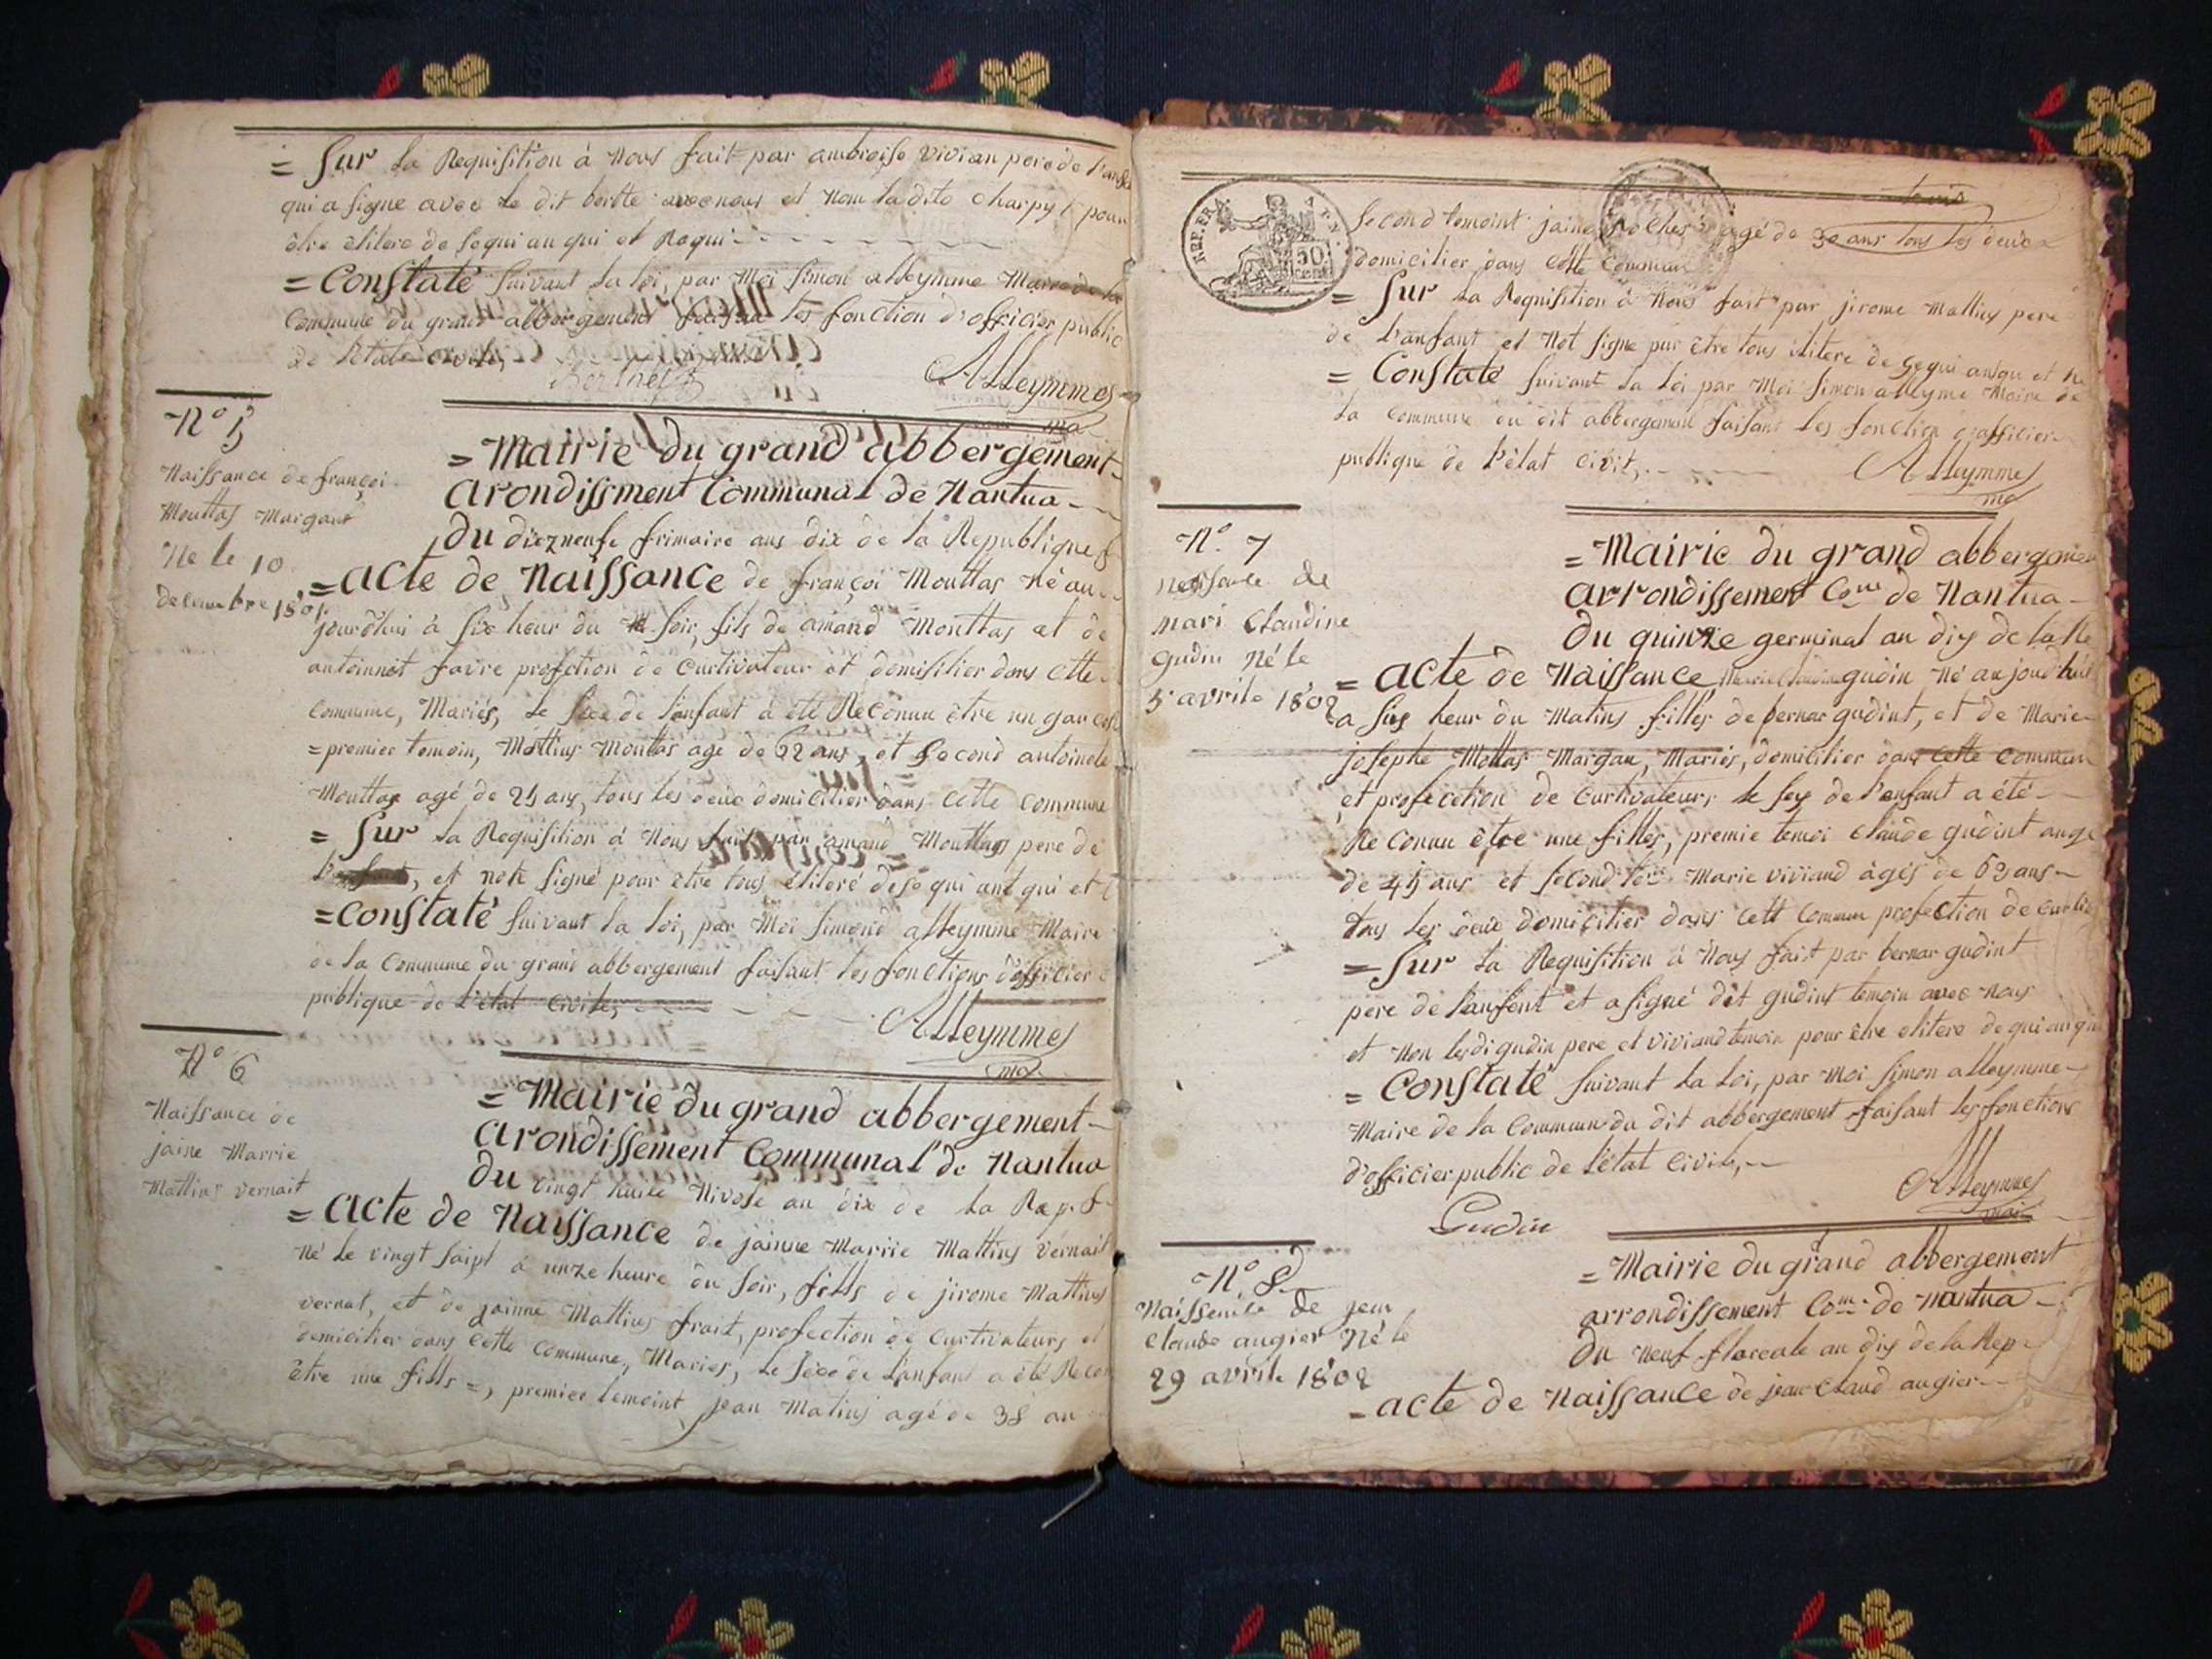 = Sur la Requisition à Nous fait par ambroise vivian pere de l'anfa
qui a signe avec le dit avec nous et Nom ladite charpy pour
être elitere de sequi an qui et Requi
= Constaté suivant la loi, par Moi simon alleymme Maire de la
Commune du grand abbergement faisant les fonction d'officier public
de l'état civile,
Alleymmes
ma
N° 5
Naissance de françoi
Mouttas Margant
Ne le 10
decembre 1801
= Mairie du grand abbergement
arondissment Communal de Nantua
du dizneufe frimaire ans dix de la Republique f
= acte de Naissance de françoi Mouttas Né au
jourdhui à six heur du soir, fils de amand Mouttas et de
antoinnet favre profection de curtivateur et domisilier dans cette
commune, Mariés, le sexe de l'anfant à été Reconnu être un garcon
= premier temoin, Mattius Mouttas age de 62 ans, et second antoinele
Mouttas agé de 25 ans, tous les deux domicilier dans cette commune
= Sur la Requisition à Nous fait par amand Mouttas pere de
l'enfant, et note signé pour être tous eliteré de se qui ant qui et
= Constaté suivant la loi, par Moi simond alleymme Maire
de la Commune du grand abbergement faisant les fonctions d'officier
publique de l'état civile,
Alleymmes
ma
N° 6
Naissance de
jaine Marrie
Mattius vernait
= Mairie du grand abbergement
arondissement Communal de Nantua
du vingt huite Nivose an dix de la Rep. f
= acte de Naissance de jainne Marrie Mattius vernait
né le vingt saipt à unze heure du soir, fills de jirome Mattius
vernat, et de jainne Mattius frait, profection de curtivateurs et
demicilier dans cette commune, Maries, le sexe de l'anfans a été Recon
être une fills =, premier temoint jean Matius agé de 38 an
REP. FRA.
50
cent
second temoint jaine agé de 30 ans tous les deux
domicilier dans cette commun
= Sur la Requisition à Nous fait par jirome Mattius pere
de l'anfant et Not signe pur être tous ilitere de sequi anqu et Re
= Constaté suivant la loi par Moi simon alleyme Maire de
la commune du dit abbergement faisant les fonction d'officier
publique de l'état civit,
Alleymmes
ma
N° 7
nessance de
mari claudine
gudin Né le
5 avrile 1802
= Mairie du grand abbergemen
arrondissement Cone de Nantua
du quinze germinal an dix de la Re
= acte de Naissance gudin Né aujoud'hui
a six heur du Matins filles de bernar gudint, et de Marie
josephe Mottas Margan, Mariés, domicilier dans cette commun
et profection de curtivateurs, le sex de l'enfant a été
Reconnu être une filles, premie temoi claude gudint
de 45 ans et second Marie viviand àgés de 62 ans
tous les deux domicilier dans cett commun profection de curtiv
= Sur la Requisition à Nous fait par bernar gudint
pere de l'anfent et a signé dit gudint temoin avec Nous
et Non ledi gudin pere et viviand temoin pour être elitere de qui anqui
= Constaté suivant la loi, par Moi simon alleymme
Maire de la commun du dit abbergement faisant les fonctions
d'officier public de l'état civit,
Alleymmes
mai
Gudin
N° 8
Naissence de jean
claude augier Né le
29 avrile 1802
= Mairie du grand abbergement
arrondissement Com. de nantua
du neuf floreale an dix de la Rep
= acte de Naissance de jean claud augier